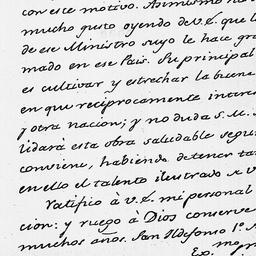 con este motivo. Asimismo ha
mucho gusto oyendo de V.E. que l
de ese Ministro suyo le hace gra
mado en ese Pais. Su principal
es cultivar y estrechar la buena
en que recíprocamente intere
y otra nacion; y no duda S. M.
lidará esta obra saludable segun
conviene, habiendo de tener ta
en ello el talento ilustrado de V
Ratifico à V.E. mi personal
cion: y ruego à Dios conserve
muchos años. San Ildefonso 1º
Ex.mo